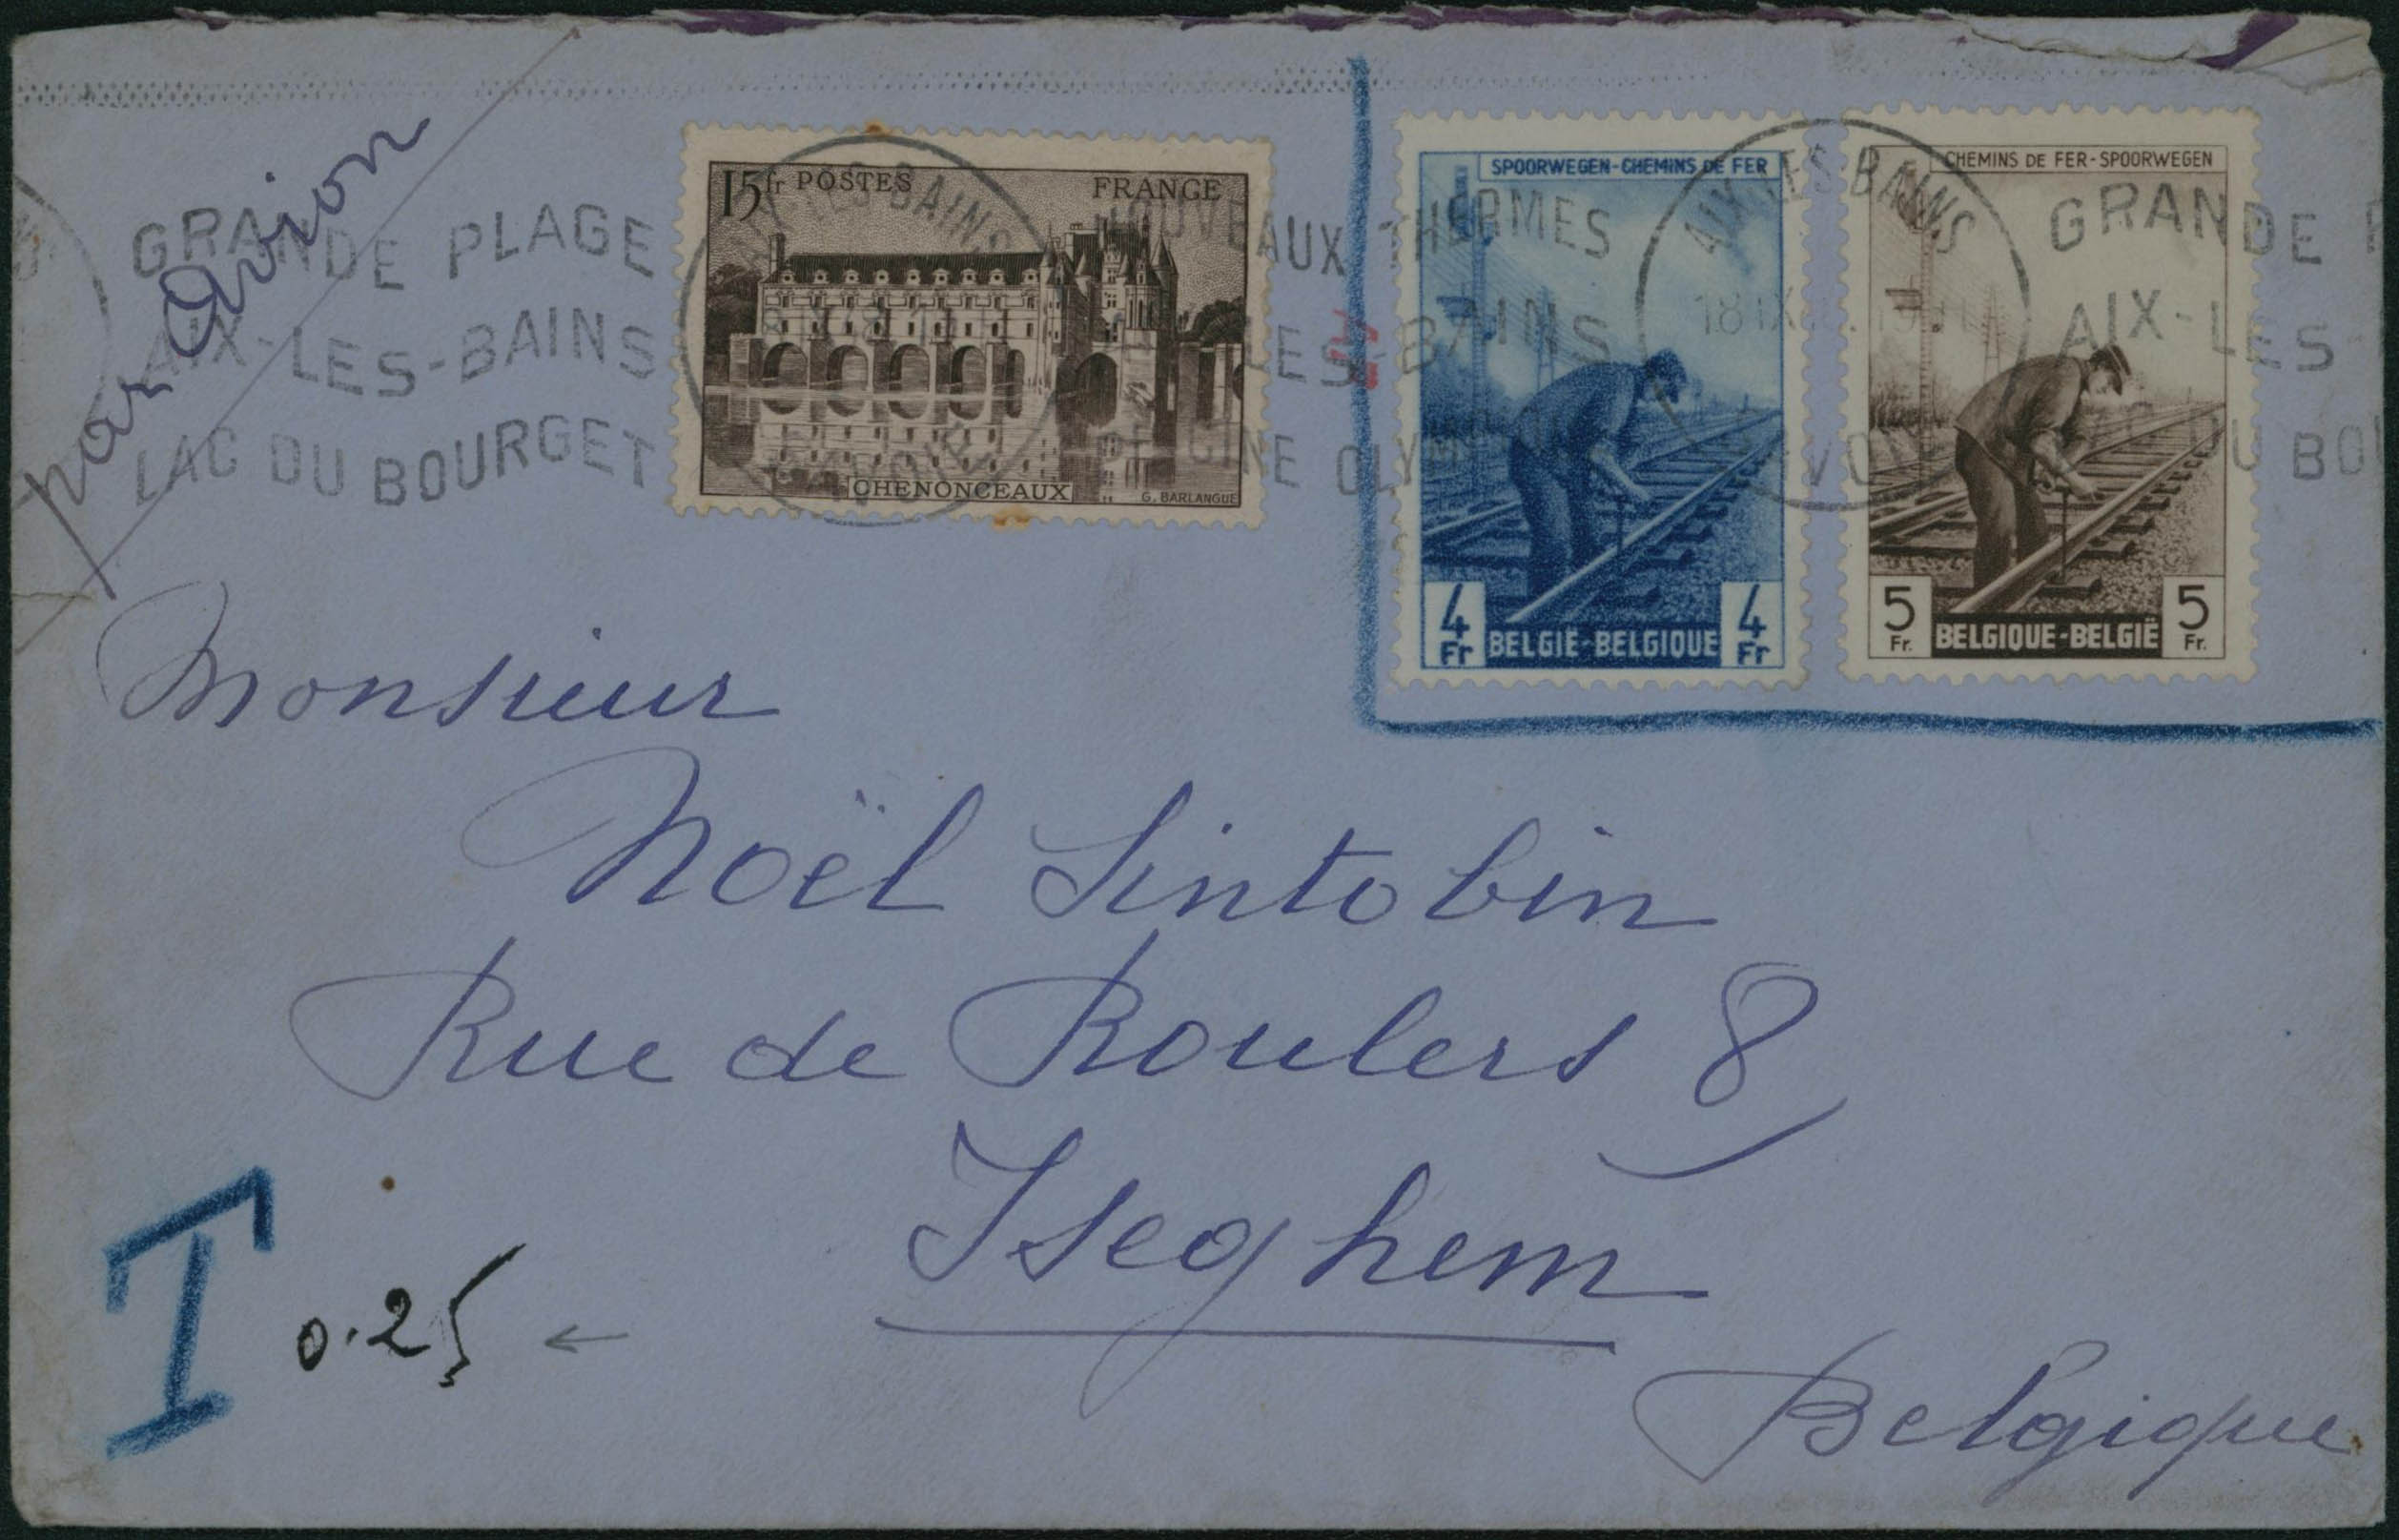 par Avion
GRANDE PLAGE
AIX-LES-BAINS
LAC DU BOURGET
15fr POSTES FRANCE
CHENONCEAUX
G. BARLANGUE
LES-BAINS
NOUVEAUX THERMES
LES-BAINS
SPOORWEGEN-CHEMINS DE FER
4 Fr BELGIË-BELGIQUE 4 Fr
AIX-LES-BAINS
18 IX
CHEMINS DE FER-SPOORWEGEN
5 Fr. BELGIQUE-BELGIË 5 Fr.
GRANDE P
AIX-LES
DU BOU
Monsieur
Noël Sintobin
Rue de Roulers 8
Iseghem
Belgique
T 0.25 ←